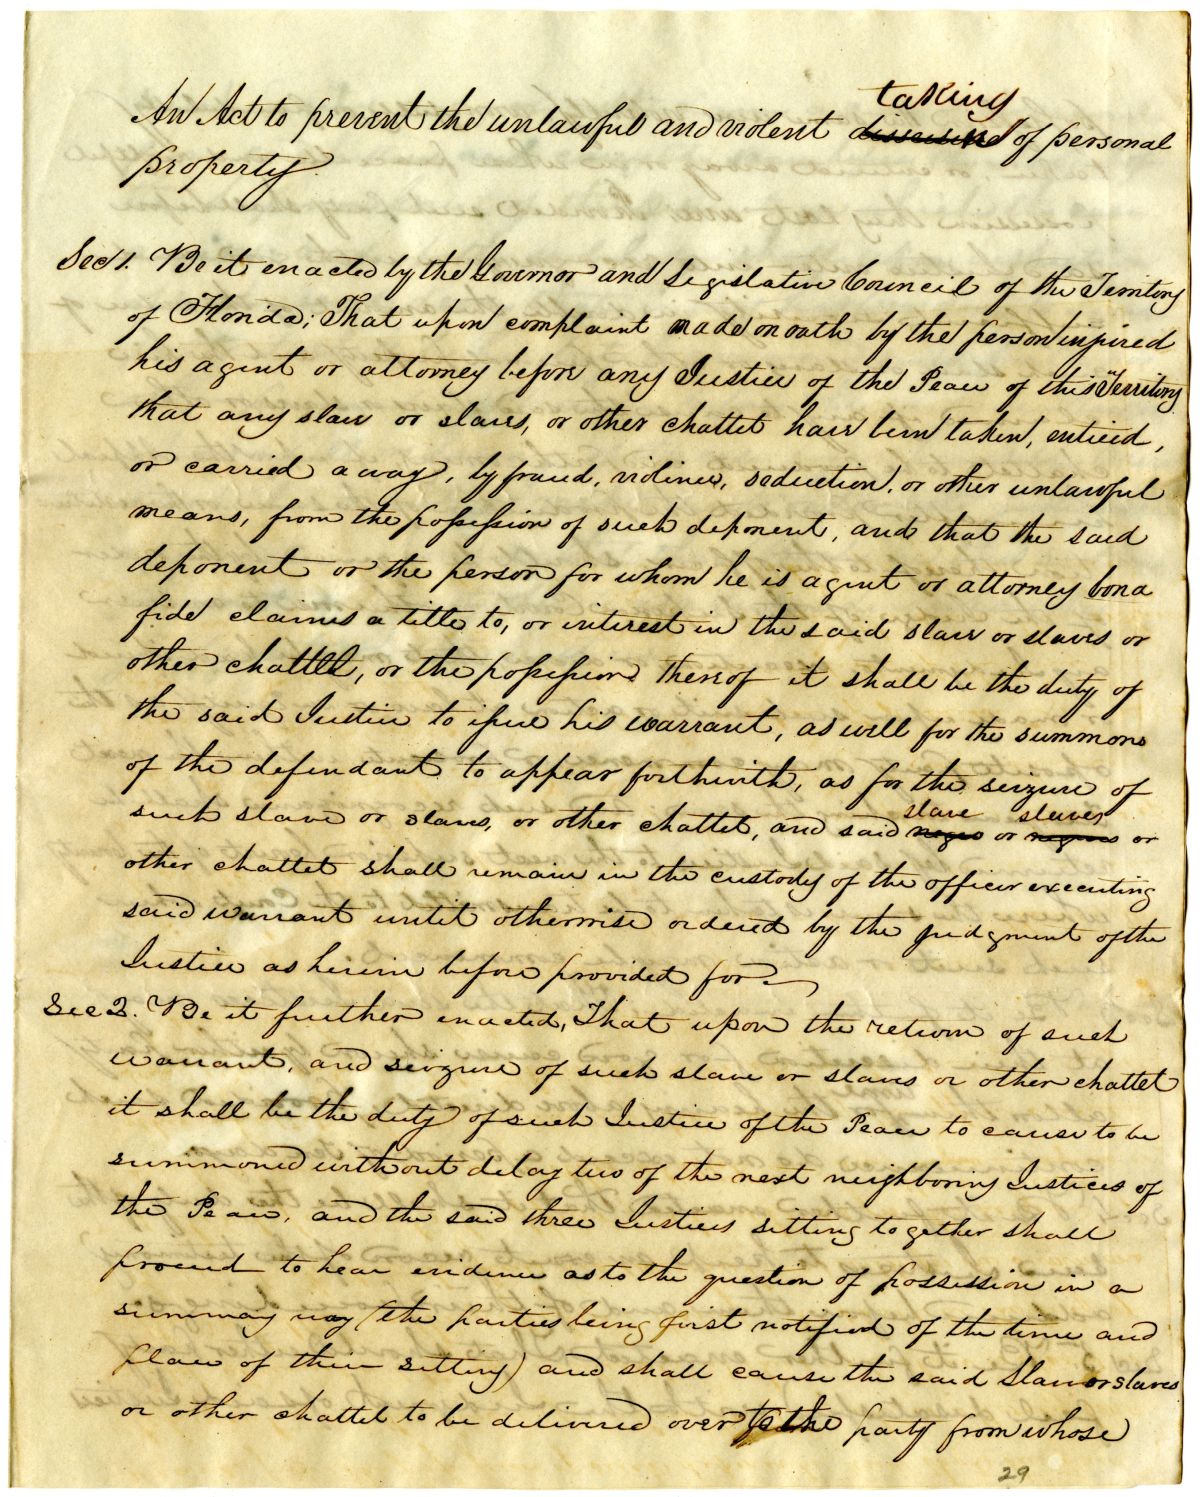 taking
An Act to prevent the unlawful and violent of personal
property.
Sec 1. Be it enacted by the Governor and Legislative Council of the Territory
of Florida; That upon complaint made on oath by the person injured
his agent or attorney before any Justice of the Peace of this Territory
that any slave or slaves, or other chattel have been taken, enticed,
or carried away, by fraud, violence, seduction, or other unlawful
means, from the possession of such deponent, and that the said
deponent or the person for whom he is agent or attorney bona
fide claims a title to, or interest in the said slave or slaves or
other chattel, or the possession thereof it shall be the duty of
the said Justice to issue his warrant, as well for the summons
of the defendant to appear forthwith, as for the seizure of
slave slaves
such slave or slaves, or other chattel, and said negro or negroes or
other chattel shall remain in the custody of the officer executing
said warrant until otherwise ordered by the judgment of the
Justice as herein before provided for.
Sec 2. Be it further enacted, That upon the return of such
warrant, and seizure of such slave or slaves or other chattel
it shall be the duty of such Justice of the Peace to cause to be
summoned without delay two of the next neighboring Justices of
the Peace, and the said three Justices sitting together shall
proceed to hear evidence as to the question of possession in a
summary way (the parties being first notified of the time and
place of their sitting) and shall cause the said Slave or slaves
or other chattel to be delivered over to the party from whose
29